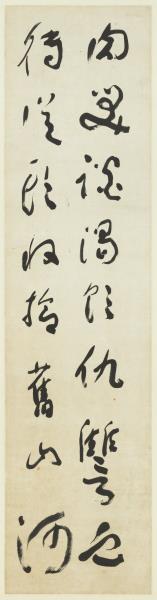 肉笑談渴飲仇讐血
待從頭收拾舊山河